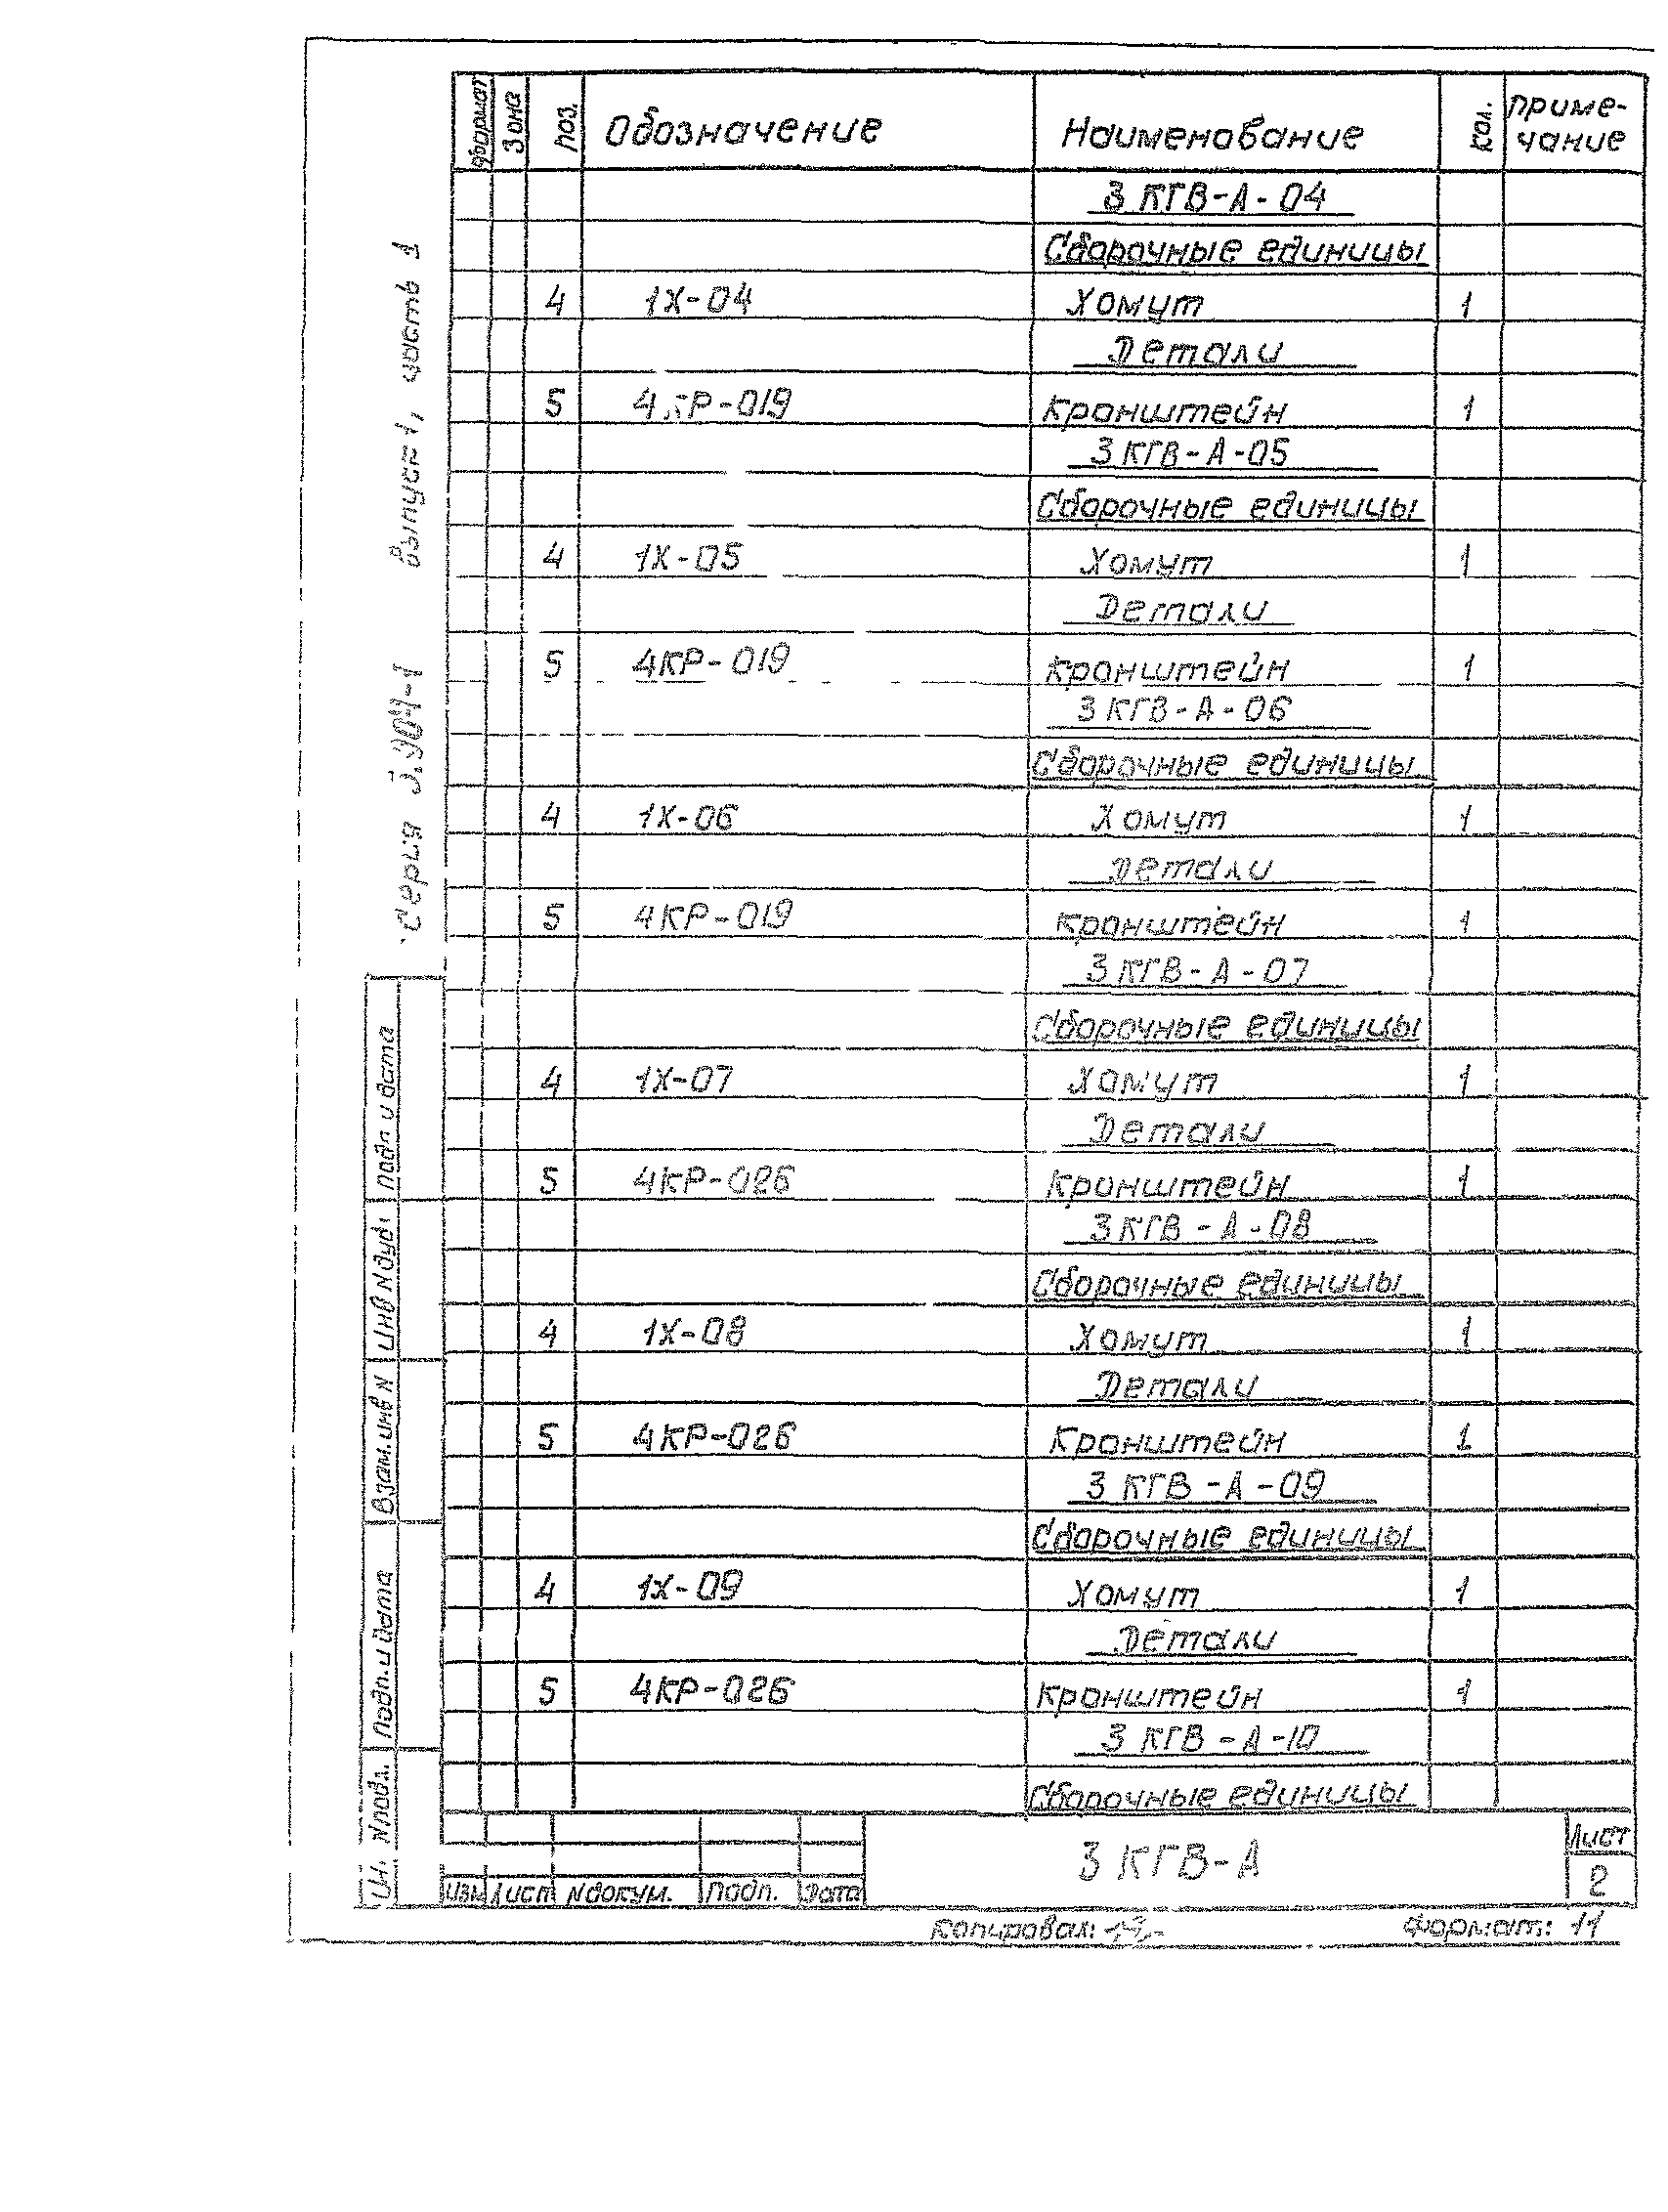 Формат Зона Поз. Обозначение Наименование Кол. Приме-
чание
3 КГВ-А-04
Сборочные единицы
4 1Х-04 Хомут 1
Детали
5 4КР-019 Кронштейн 1
3 КГВ-А-05
Сборочные единицы
4 1Х-05 Хомут 1
Детали
5 4КР-019 Кронштейн 1
3 КГВ-А-06
Сборочные единицы
4 1Х-06 Хомут 1
Детали
5 4КР-019 Кронштейн 1
3 КГВ-А-07
Сборочные единицы
4 1Х-07 Хомут 1
Детали
5 4КР-026 Кронштейн 1
3 КГВ-А-08
Сборочные единицы
4 1Х-08 Хомут 1
Детали
5 4КР-026 Кронштейн 1
3 КГВ-А-09
Сборочные единицы
4 1Х-09 Хомут 1
Детали
5 4КР-026 Кронштейн 1
3 КГВ-А-10
Сборочные единицы
Изм Лист N докум. Подп. Дата
3 КГВ-А
Лист
2
Копировал:
Формат: 11
Серия 5.904-1 Выпуск 1, часть 1
Подп и дата
Инв N дуб.
Взам. инв N
Подп. и дата
Ин. N подл.